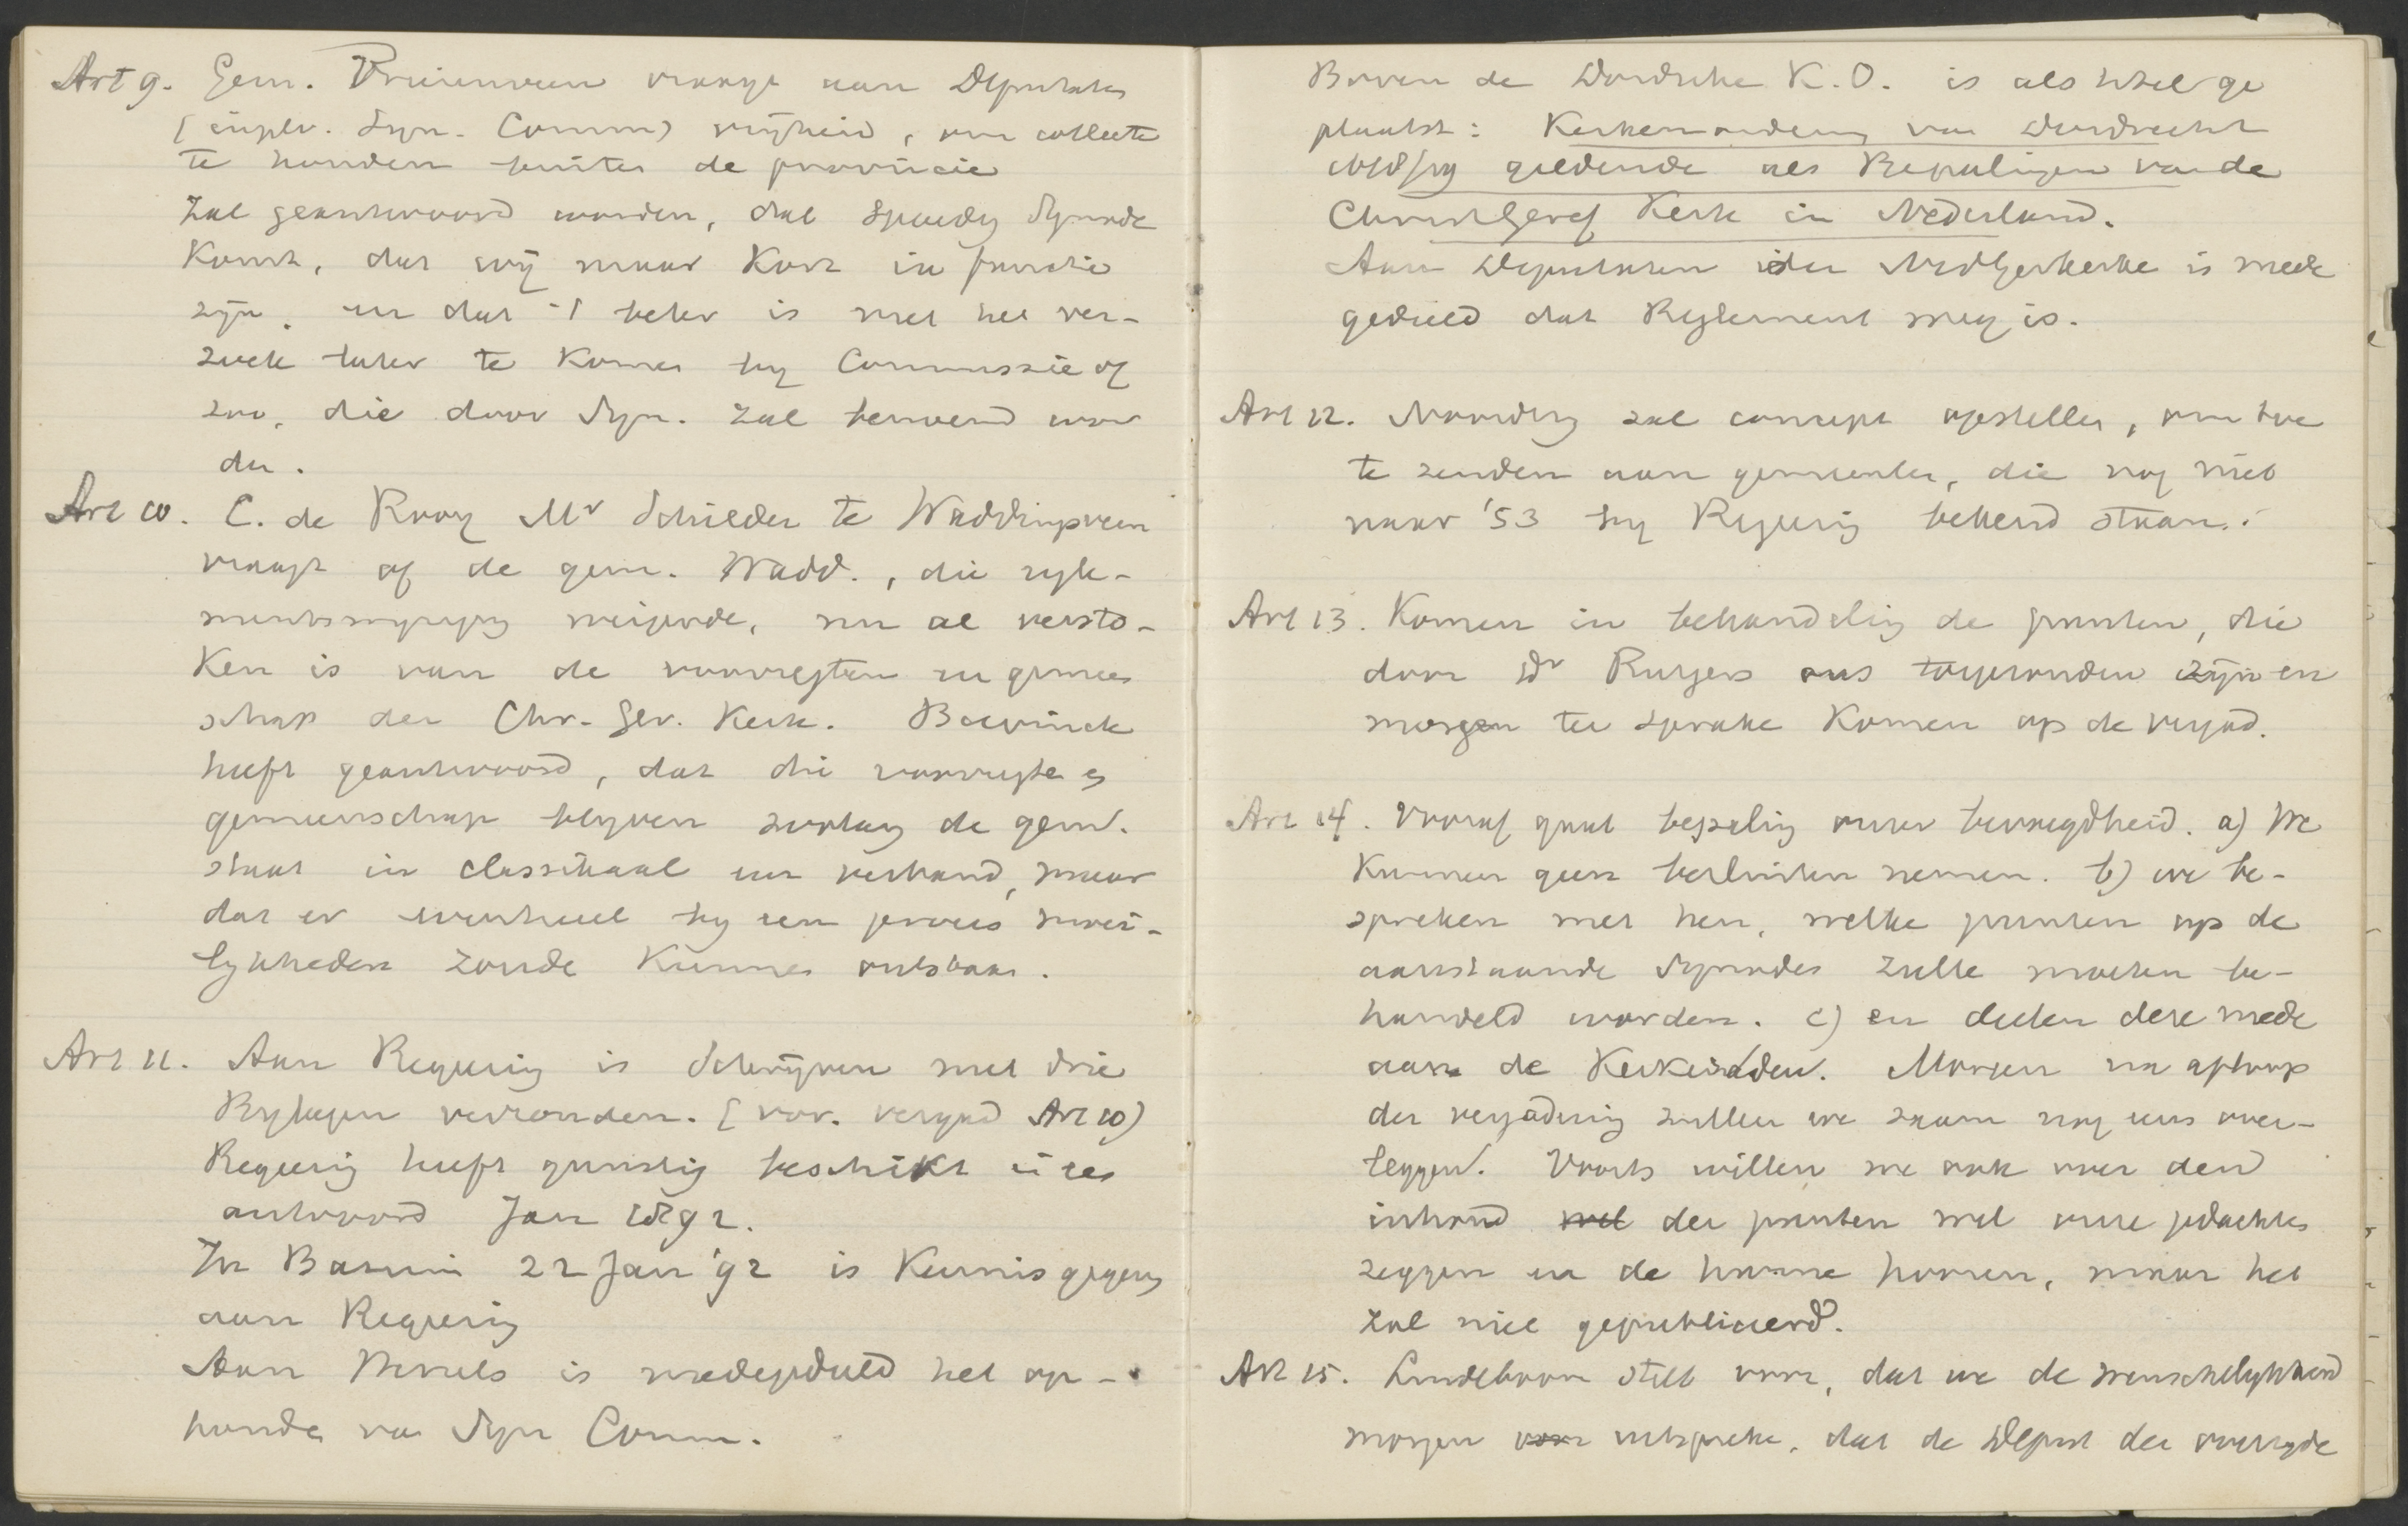 Art 9. Gem. Vriezenveen vraagt aan Deputaten
(impl. Syn. Comm) vrijheid, om collecte
te houden buiten de provincie
Zal geantwoord worden, dat spoedig Synode
komt, dat wij maar kort in functie
zijn, en dat 't beter is met het ver-
zoek later te komen by Commissie of
zoo, die door Syn. zal benoemd wor
den.
Art 10. C. de Rooy Mr Schilder te Waddinxveen
vraagt of de gem. Wadd., die regle-
mentswijziging weigerde, nu al versto-
ken is van de voorregten en gemeen
schap der Chr. Ger. Kerk. Bavinck
heeft geantwoord, dat die voorregten en
gemeenschap blyven zoolang de gem.
staat in classikaal verband, maar
dat er eventueel by een proces moei-
lykheden zoude kunnen ontstaan.
Art 11. Aan Regering is schrijven met drie
Bylagen verzonden. (vor. vergad Art 10)
Regering heeft gunstig beschikt in
antwoord Jan 1892.
In Bazuin 22 Jan '92 is kennis gegeven
aan Regering
Aan is medegedeeld het op-
houden van Syn Comm.
Boven de Dordsche K.O. is als titel ge
plaatst: Kerkenordening van Dordrecht
1618/19 geldende als Bepalingen van de
Christ Geref Kerk in Nederland.
Aan Deputaten der Ned Ger kerke is mede
gedeeld dat Reglement weg is.
Art 12. Noordtzij zal concept opstellen, om toe
te zenden aan gemeenten, die nog niet
naar '53 by Regering bekend staan.
Art 13. Komen in behandeling de punten, die
door Dr Rutgers ons toegezonden zijn en
morgen ter sprake komen op de vergad.
Art 14. Vooraf gaat bepaling onzer bevoegdheid. a) We
kunnen geen besluiten nemen. b) we be-
spreken met hen, welke punten op de
aanstaande Synodes zulle moeten be-
handeld worden. c) en deelen deze mede
aan de Kerkeraden. Morgen na afloop
der vergadering zullen we saam nog eens over-
leggen. Voorts willen we ook over den
inhoud wel der punten wel onze gedachtes
zeggen en de hunne hooren, maar het
zal niet gepubliceerd.
Art 15. Lindeboom stelt voor, dat we de wenschelykheid
morgen voor uitspreke, dat de Deput der overzyde